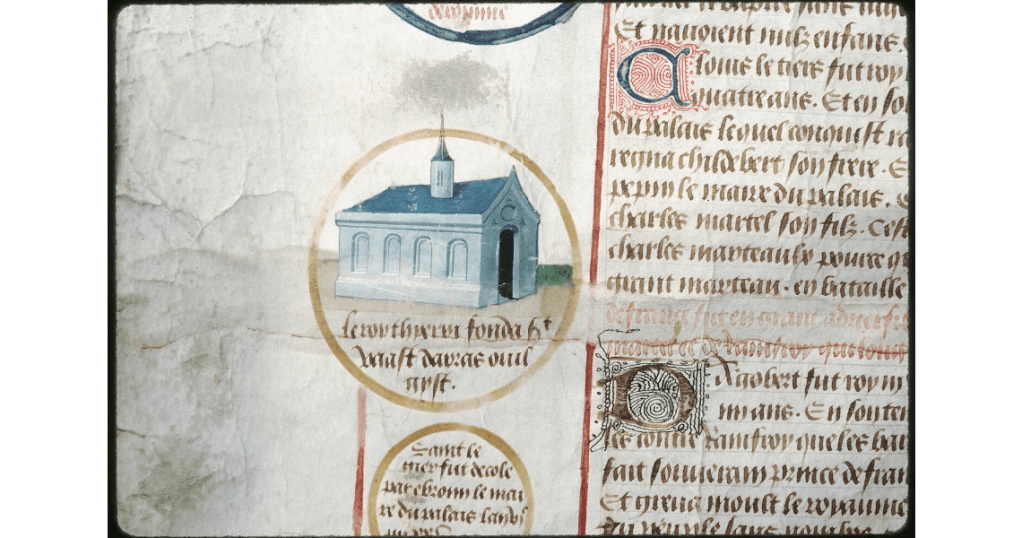 le roy thierri fonda st
vaast darras ou il
gyst.
Saint le
gier fut decole
par ebroin le mai
re du palais lan
Et navoient nulz enfans.
Clovis le tiers fut roy
quatre ans. Et en so
du palais lequel conquist
regna childebert son frere. E
pepin le maire du palais.
charles martel son filz. Cest
charles marteaulx pource q
grant marteau. en bataille
Dagobert fut roy
ans. En son te
les contre Rainfroy que les
fait souverain prince de fran
Et greva moult le royaume
du peuple sans nombre